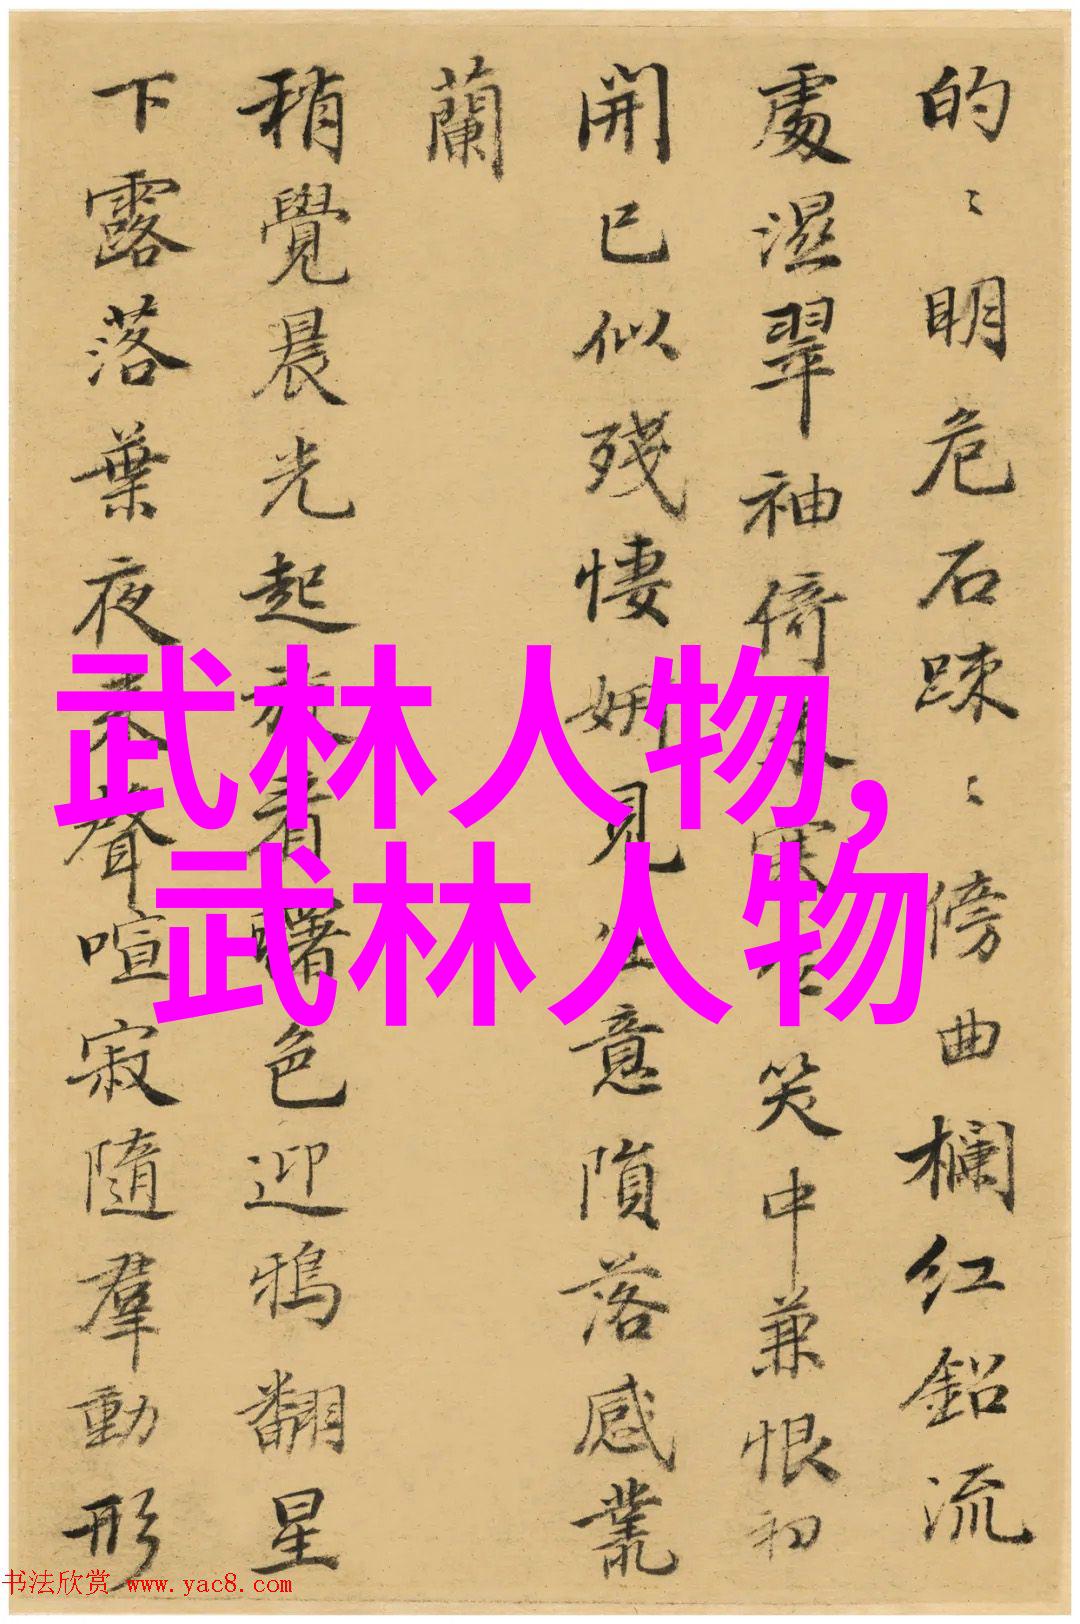 的〻明危石踈〻傍曲欄红鈆流
處濕翠袖倚寒笑中兼恨初
開已似殘悽妍見生意隕落感叢
蘭
稍覺晨光起旋看曙色迎鴉翻星
下露落葉夜來聲喧寂隨羣動形
武林人物,
武林人物
书法欣赏 www.yac8.com